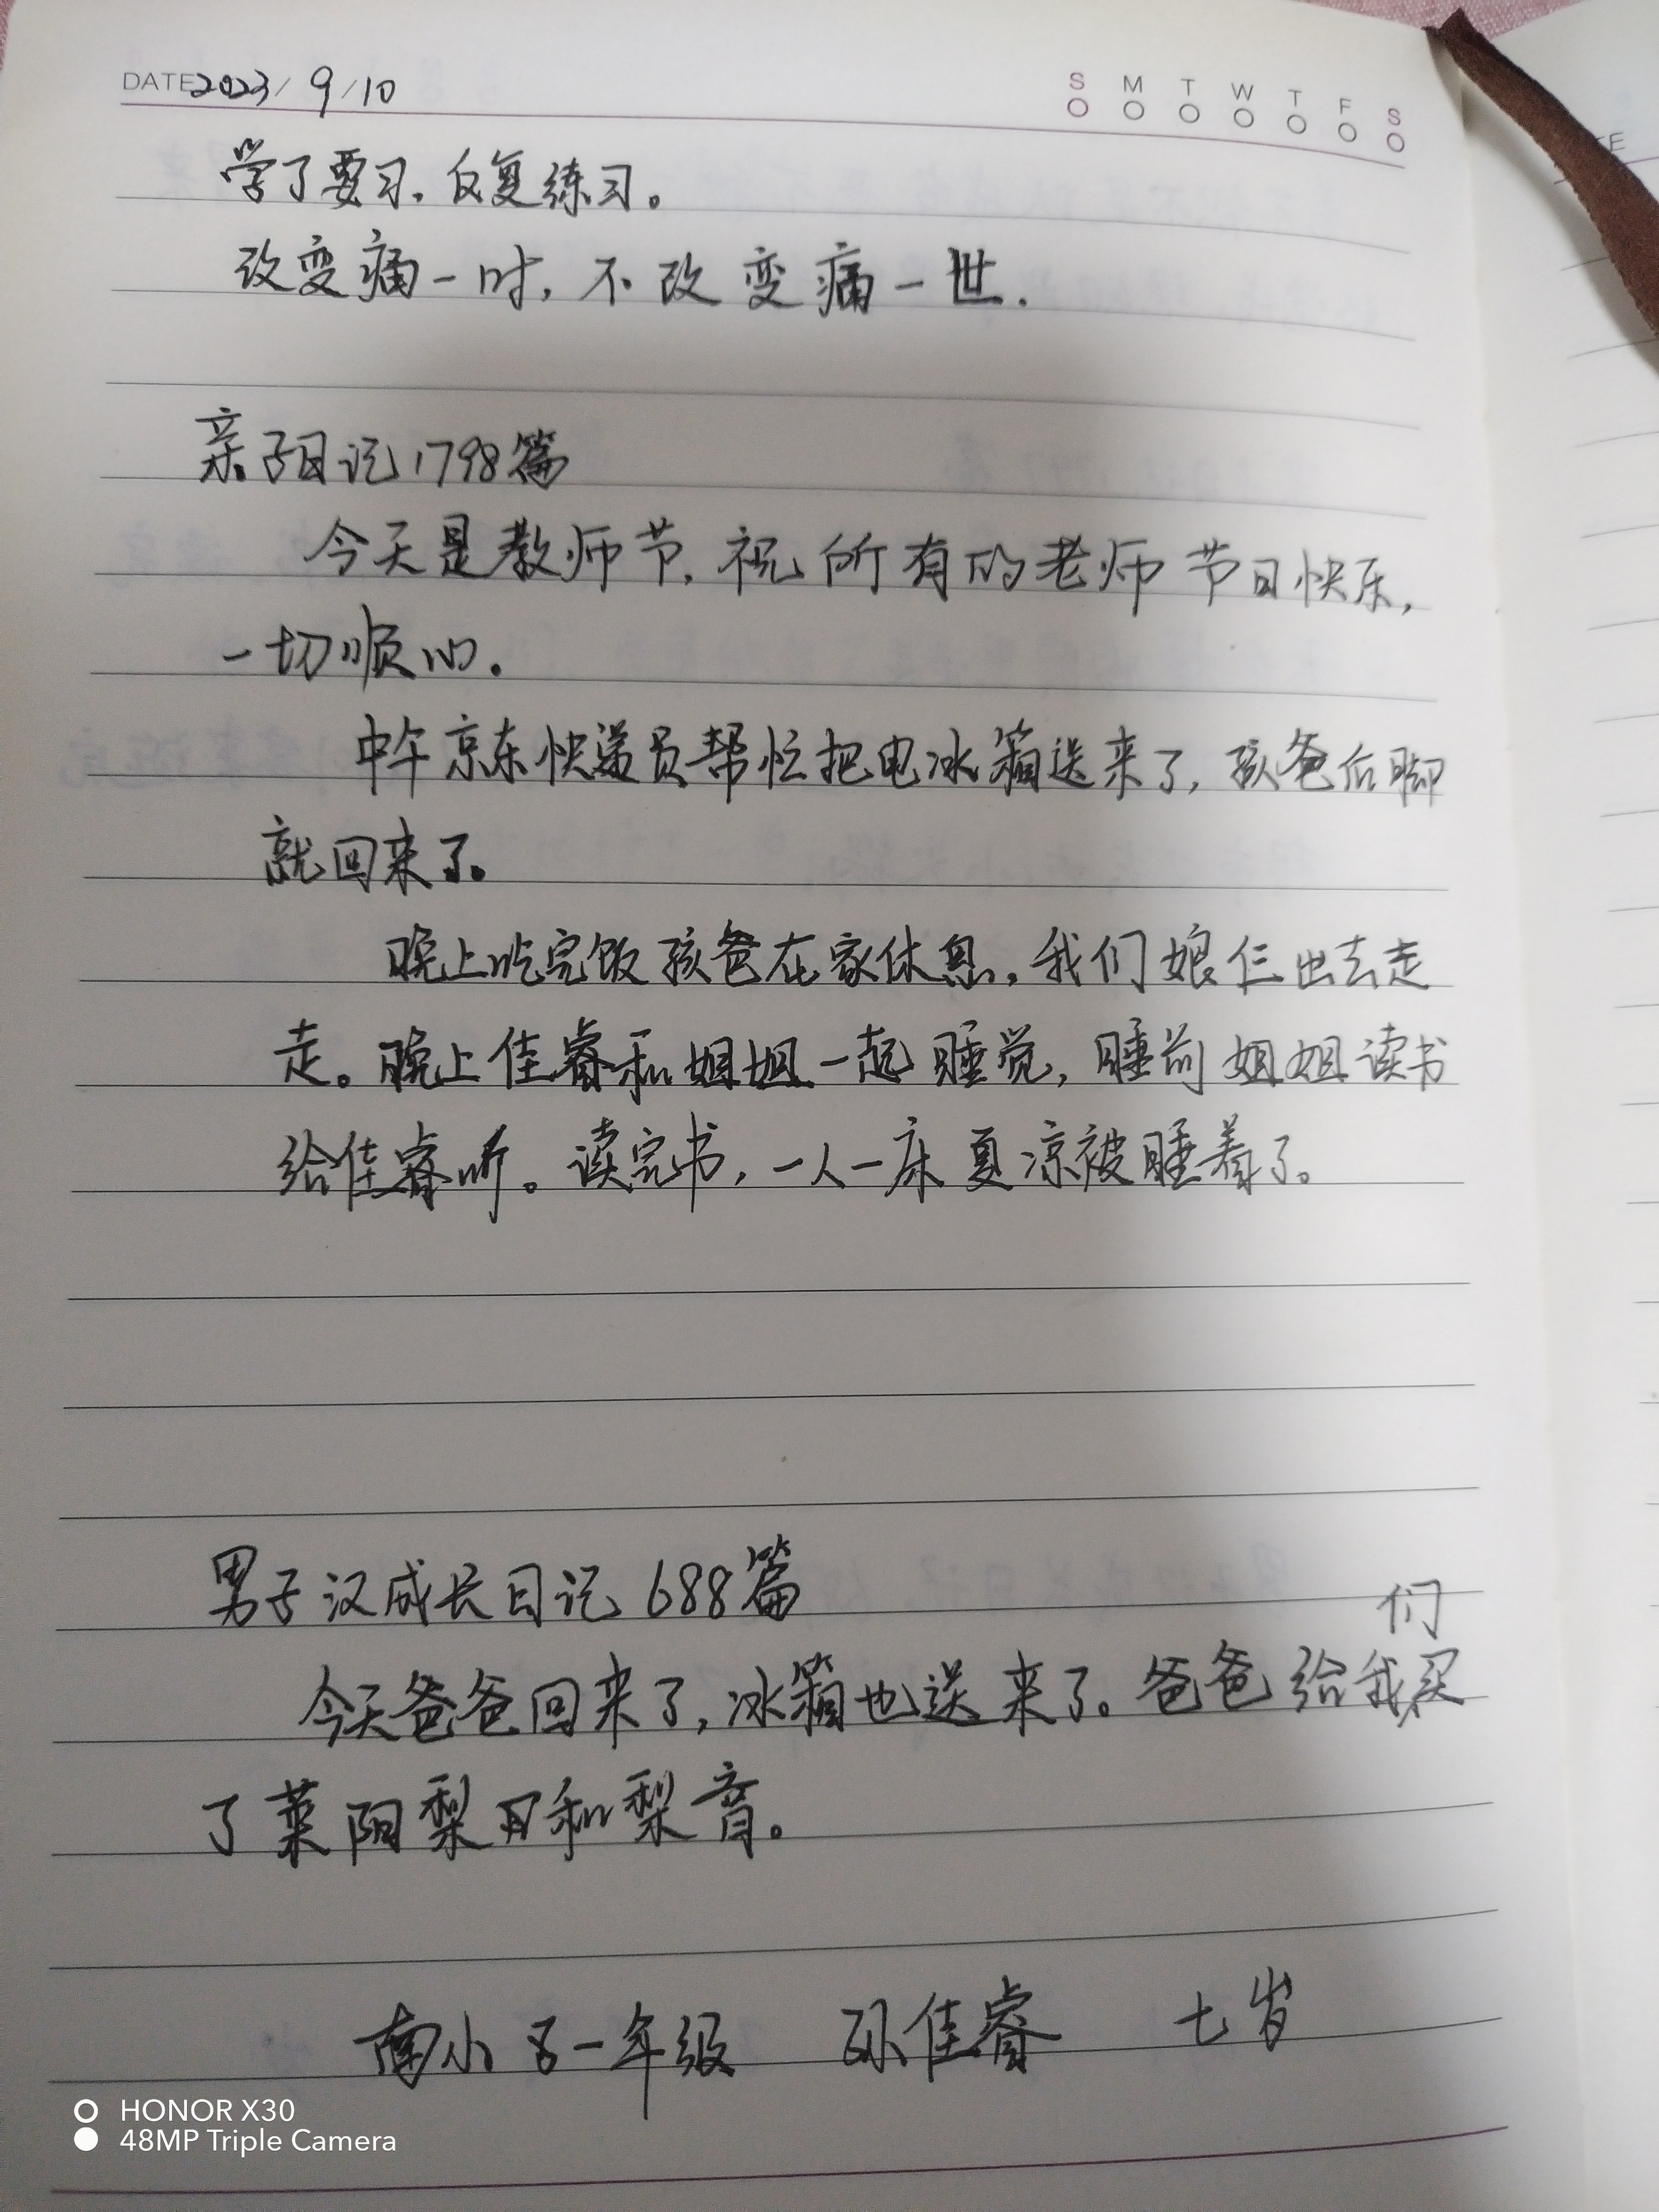 DATE 2023/9/10
S M T W T F S
学了要习，反复练习。
改变痛一时，不改变痛一世.
亲子日记1798篇
今天是教师节，祝所有的老师节日快乐，
一切顺心.
中午京东快递员帮忙把电冰箱送来了，孩爸后脚
就回来了。
晚上吃完饭孩爸在家休息，我们娘仨出去走
走。晚上佳睿和姐姐一起睡觉，睡前姐姐读书
给佳睿听。读完书，一人一床夏凉被睡着了。
男子汉成长日记688篇
今天爸爸回来了，冰箱也送来了。爸爸给我们买
了莱阳梨和梨膏。
南小 一年级 孙佳睿 七岁
HONOR X30
48MP Triple Camera